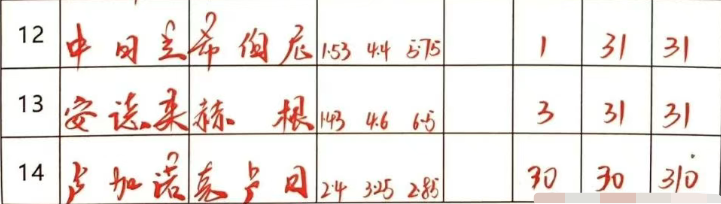 12 中日兰 希伯尼 1.53 4.4 5.75 1 31 31
13 安 赫 根 1.43 4.6 6.5 3 31 31
14 卢加诺 克卢日 2.4 3.25 2.85 30 30 310